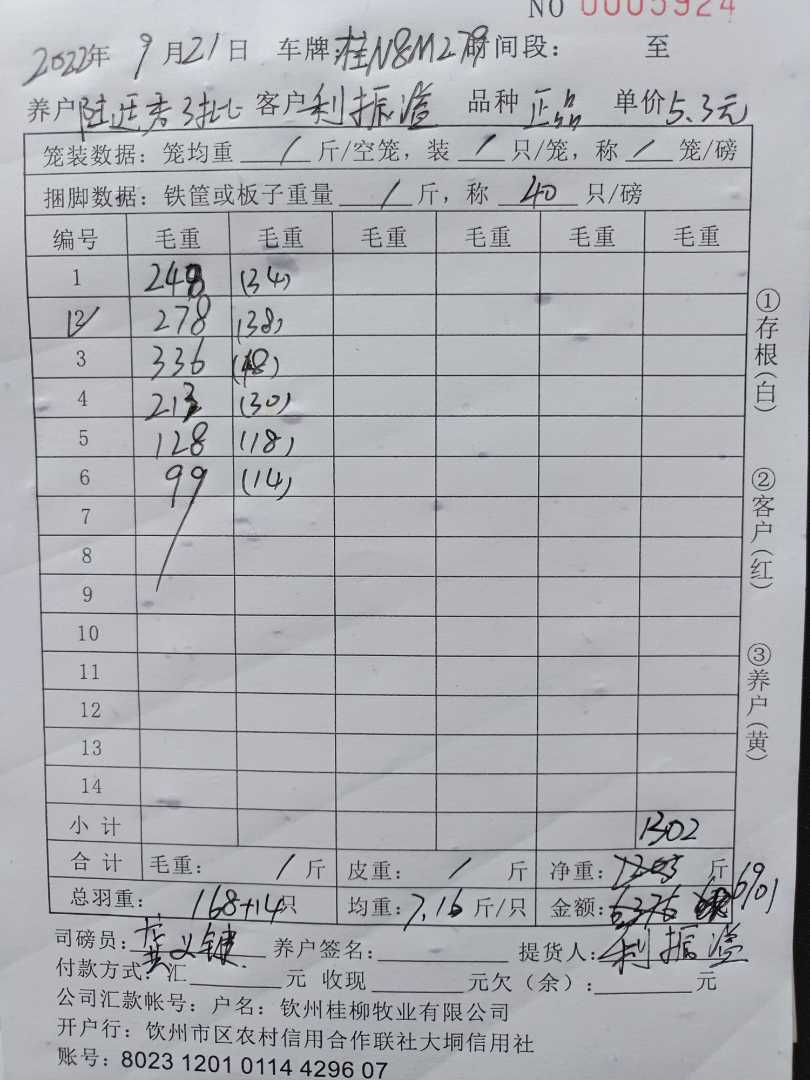 NO 0005924
2022年 9月21日 车牌:桂N8M279 时间段: 至
养户 陆廷秀3批 客户 利振溢 品种 正品 单价5.3元
笼装数据: 笼均重 / 斤/空笼, 装 / 只/笼, 称 / 笼/磅
捆脚数据: 铁筐或板子重量 / 斤, 称 40 只/磅
编号 毛重 毛重 毛重 毛重 毛重 毛重
1 248 (34)
2 278 (38)
3 336 (48)
4 213 (30)
5 128 (18)
6 99 (14)
7
8
9
10
11
12
13
14
小计 1302
合计 毛重: / 斤 皮重: / 斤 净重: 斤
总羽重: 168+14只 均重: 7.16 斤/只 金额: 6901
司磅员: 义键 养户签名: 提货人: 利振溢
付款方式: 汇 元 收现 元欠(余): 元
公司汇款帐号: 户名: 钦州桂柳牧业有限公司
开户行: 钦州市区农村信用合作联社大垌信用社
账号: 8023 1201 0114 4296 07
①存根(白)
②客户(红)
③养户(黄)